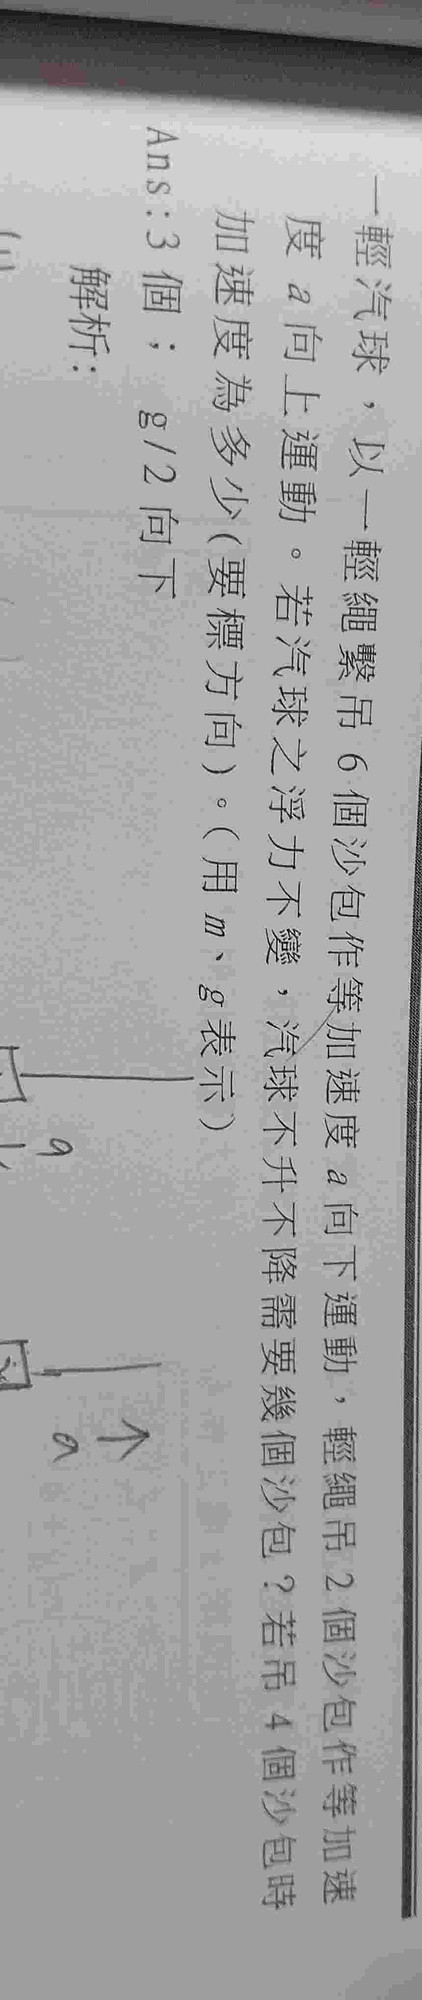 一輕汽球，以一輕繩繫吊 6 個沙包作等加速度 a 向下運動，輕繩吊 2 個沙包作等加速
度 a 向上運動。若汽球之浮力不變，汽球不升不降需要幾個沙包？若吊 4 個沙包時
加速度為多少(要標方向)。(用 m、g 表示)
Ans:3 個； g/2 向下
解析:
a
a